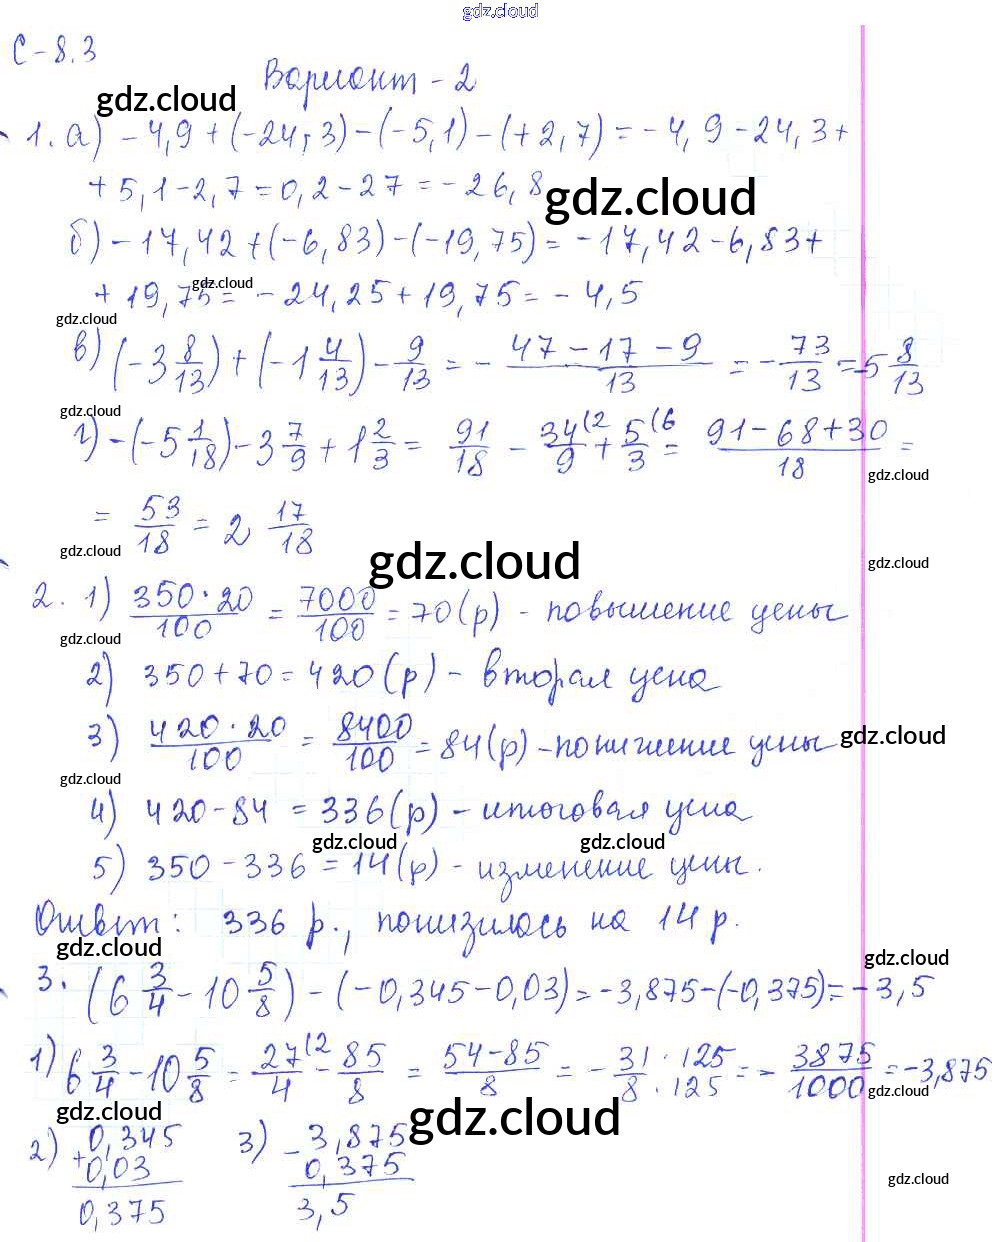 gdz.cloud
С-8.3
Вариант - 2
gdz.cloud
1. а) - 4,9 + (-24,3) - (-5,1) - (+2,7) = - 4,9 - 24,3 +
+ 5,1 - 2,7 = 0,2 - 27 = - 26,8
gdz.cloud
б) - 17,42 + (-6,83) - (-19,75) = - 17,42 - 6,83 +
gdz.cloud
+ 19,75 = - 24,25 + 19,75 = - 4,5
gdz.cloud
в) (-3 8/13) + (-1 4/13) - 9/13 = - 47 - 17 - 9/13 = - 73/13 = -5 8/13
gdz.cloud
г) - (-5 1/18) - 3 7/9 + 1 2/3 = 91/18 - 34(2/9 + 5(6/3 = 91 - 68 + 30/18 =
gdz.cloud
= 53/18 = 2 17/18
gdz.cloud gdz.cloud gdz.cloud
2. 1) 350 · 20/100 = 7000/100 = 70 (р) - повышение цены
gdz.cloud
2) 350 + 70 = 420 (р) - вторая цена
3) 420 · 20/100 = 8400/100 = 84 (р) - понижение цены
gdz.cloud
gdz.cloud
4) 420 - 84 = 336 (р) - итоговая цена
gdz.cloud gdz.cloud
5) 350 - 336 = 14 (р) - изменение цены.
Ответ: 336 р., понизилась на 14 р.
gdz.cloud gdz.cloud
3. (6 3/4 - 10 5/8) - (-0,345 - 0,03) = -3,875 - (-0,375) = - 3,5
1) 6 3/4 - 10 5/8 = 27(2/4 - 85/8 = 54 - 85/8 = - 31/8 · 125/125 = - 3875/1000 = -3,875
gdz.cloud
gdz.cloud gdz.cloud
2) 0,345 3) - 3,875
+ 0,03 0,375
0,375 3,5
gdz.cloud